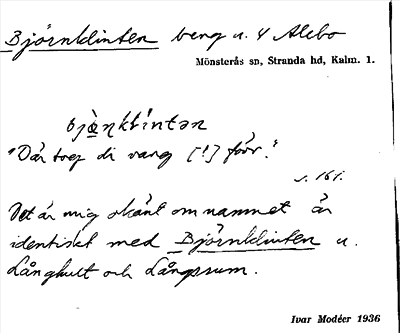 Björnklinten berg u. 4 Alebo
Mönsterås sn, Stranda hd, Kalm. l.
bjö̀ṇklintən
"Där tog di varg [!] förr."
s. 161.
Det är mig okänt om namnet är
identiskt med Björnklinten u.
Långhult och Långrum.
Ivar Modéer 1936